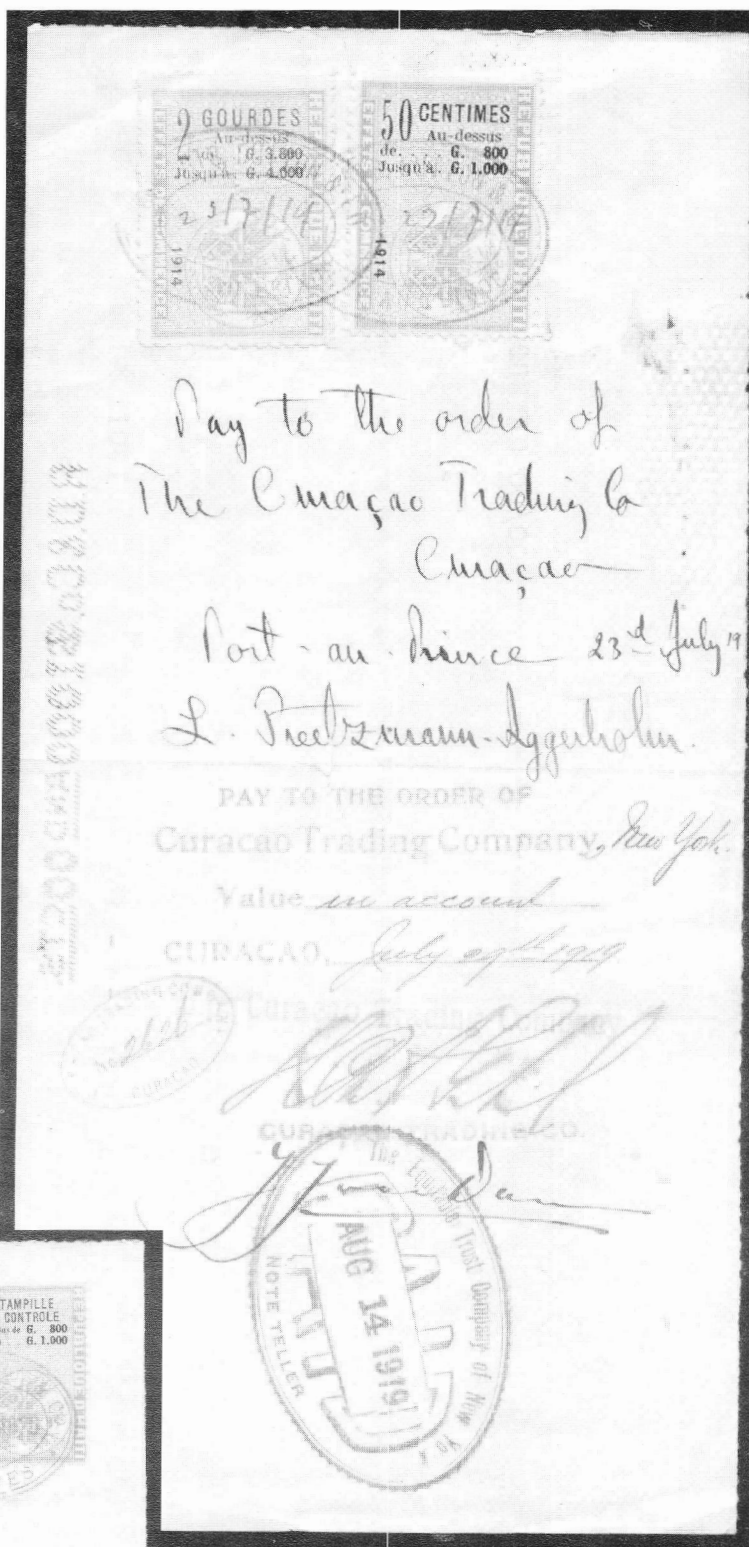 2 GOURDES
Au-dessus
G. 3.800
Jusqu'à. G. 4.000
23/7/19
1914
50 CENTIMES
Au-dessus
de. . . . G. 800
Jusqu'à. G. 1.000
23/7/19
1914
Pay to the order of
The Curaçao Trading Co
Curaçao
Port-au-Prince 23d July 19
L. Preetzmann-Aggerholm.
PAY TO THE ORDER OF
Curacao Trading Company, New York.
Value in account
CURACAO, July 29th 1919
Curacao Trading Company
No 2626
CURACAO
CURACAO TRADING CO.
The Equitable Trust Company of New York
PAID
AUG 14 1919
NOTE TELLER
TAMPILLE
CONTROLE
de G. 800
G. 1.000